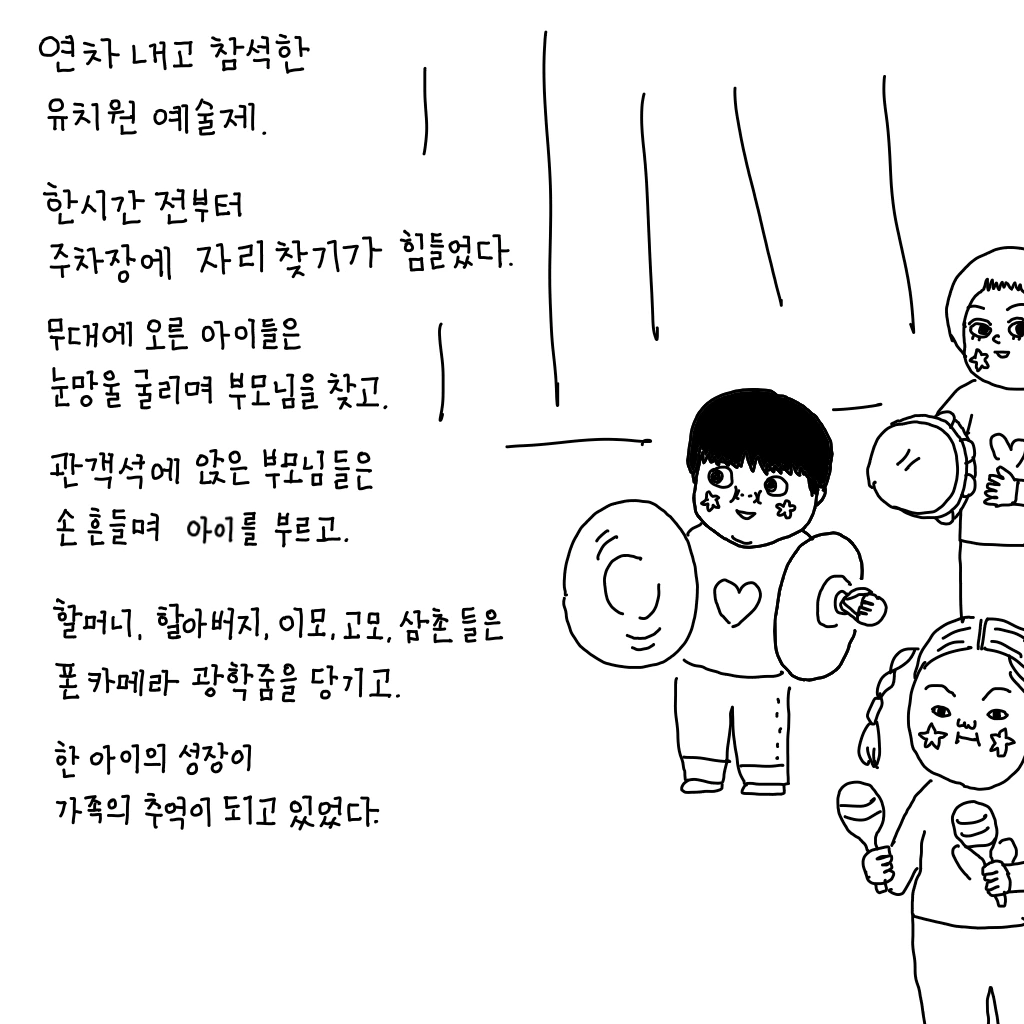 연차 내고 참석한
유치원 예술제.
한시간 전부터
주차장에 자리 찾기가 힘들었다.
무대에 오른 아이들은
눈망울 굴리며 부모님을 찾고.
관객석에 앉은 부모님들은
손 흔들며 아이를 부르고.
할머니, 할아버지, 이모, 고모, 삼촌들은
폰 카메라 광학줌을 당기고.
한 아이의 성장이
가족의 추억이 되고 있었다.